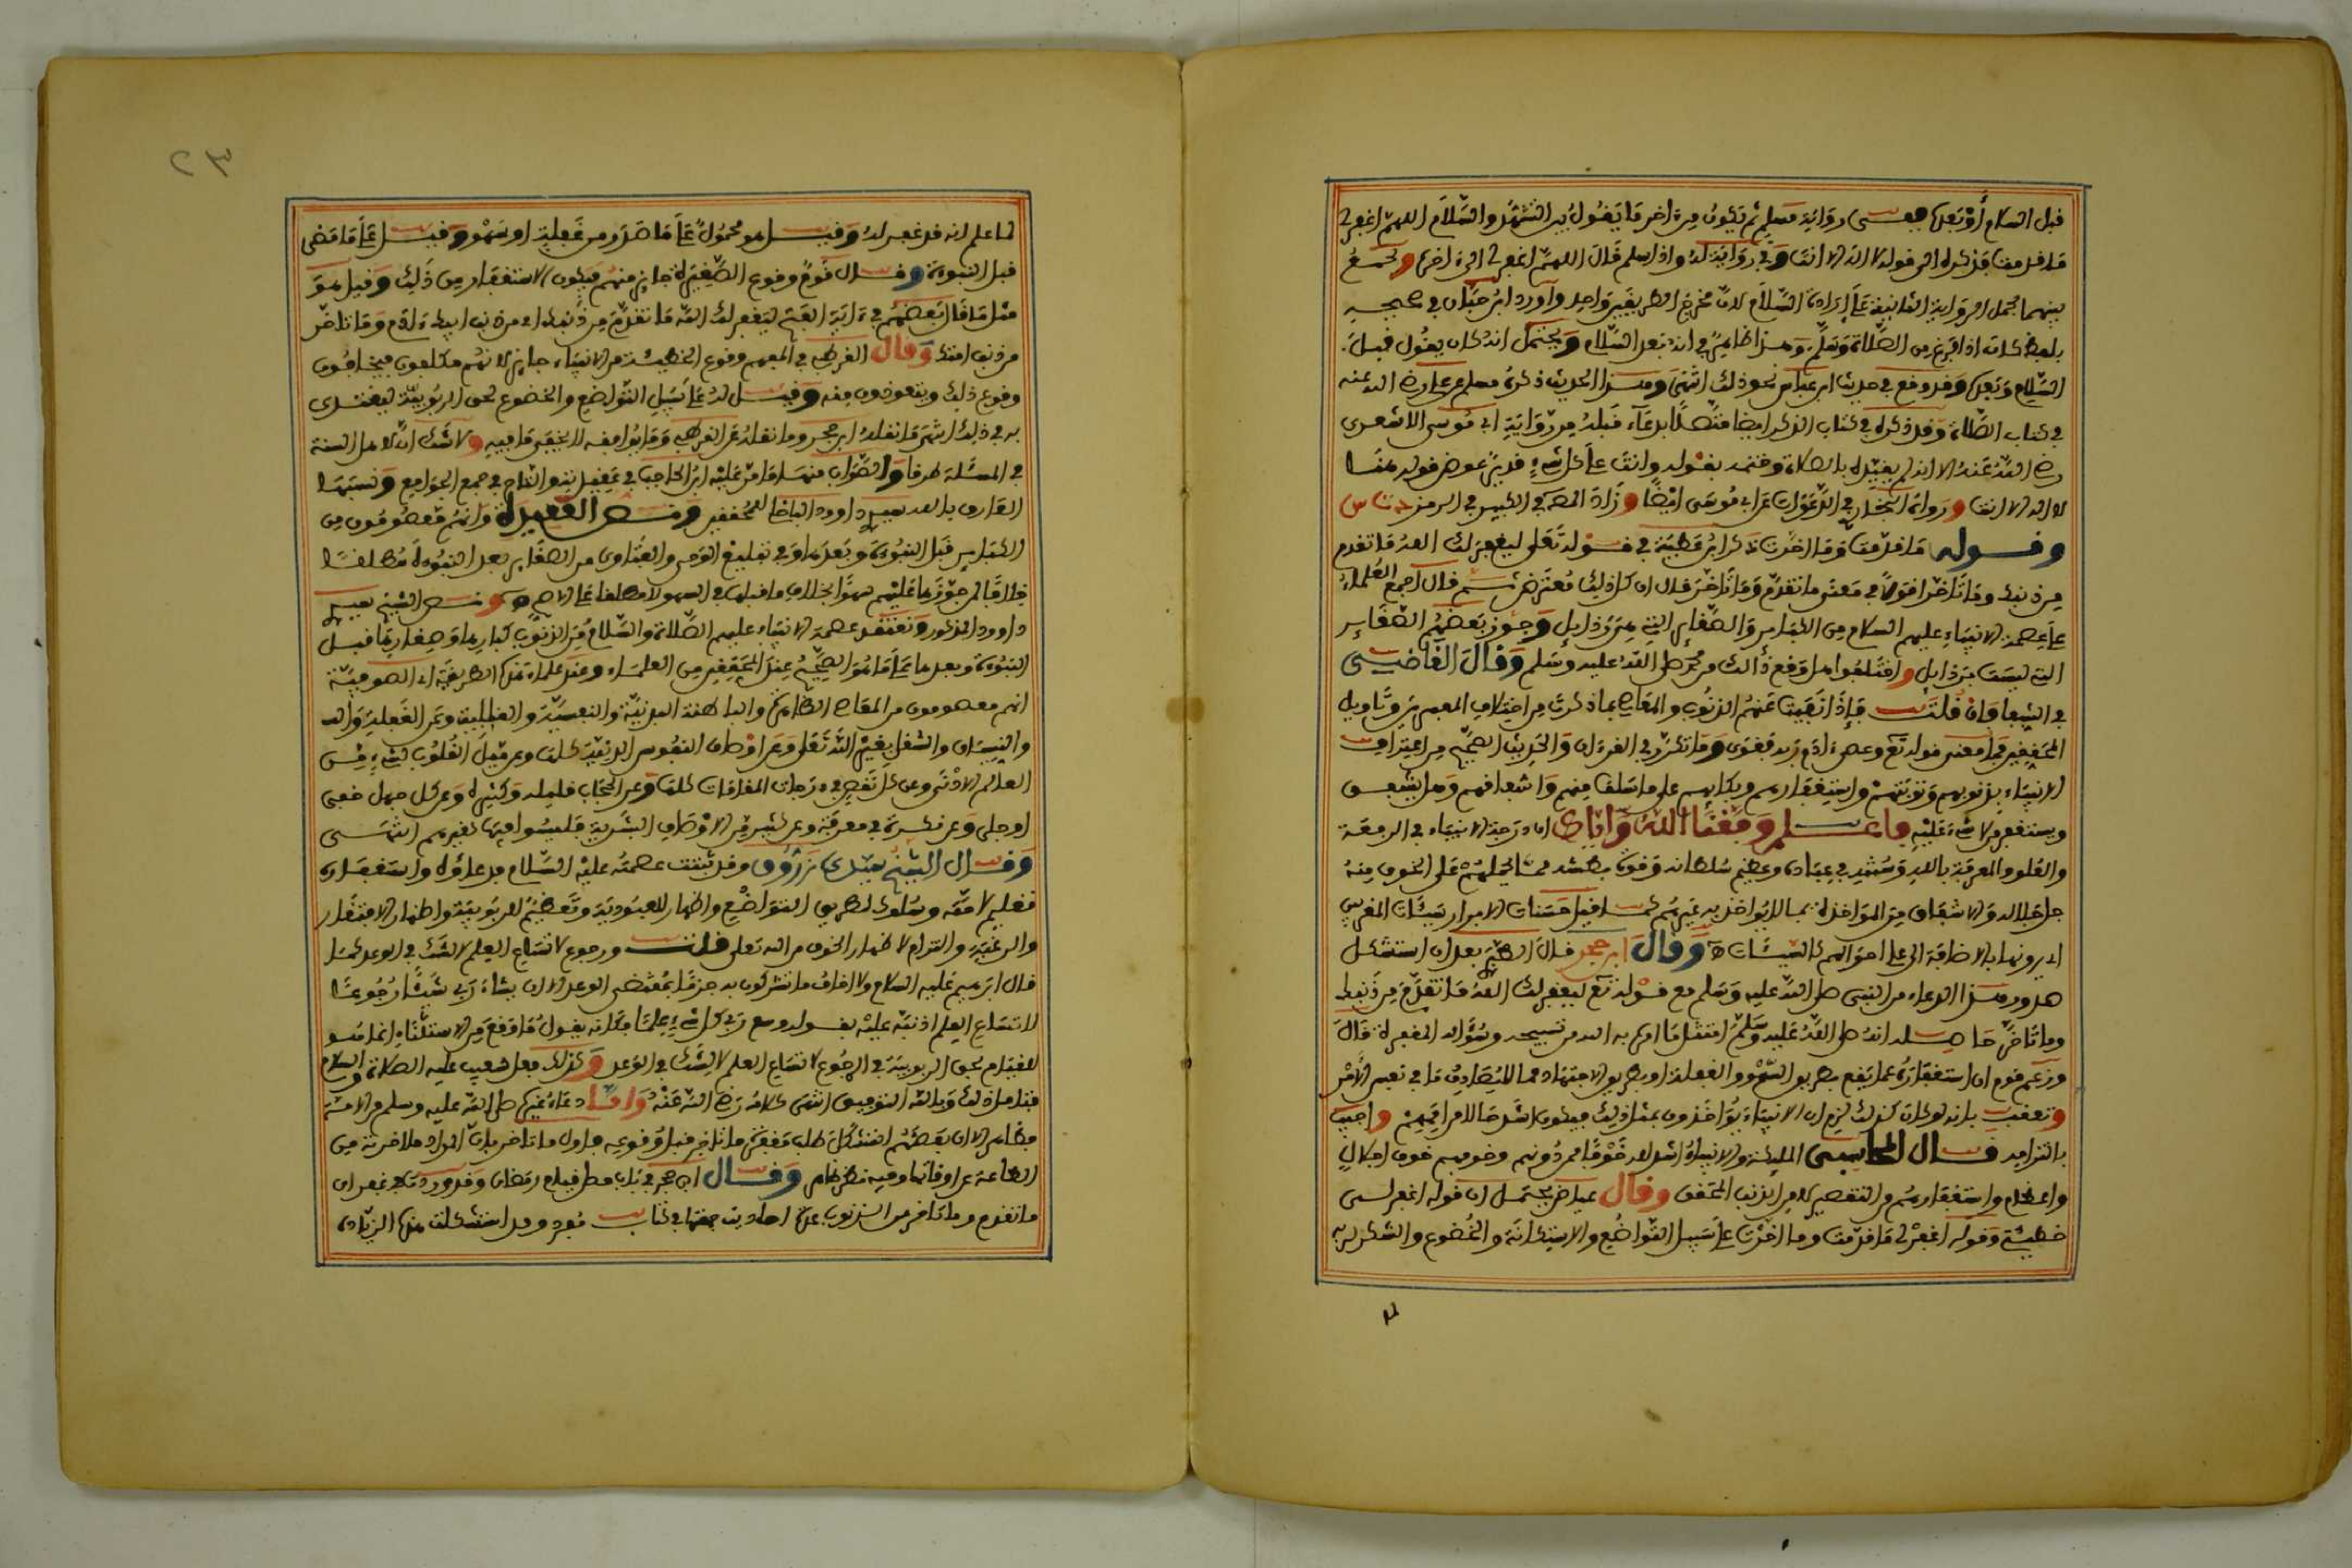 قبل السلام أو بعده ففي رواية مسلم ثم يكون من اخر ما يقول بين التشهد والسلام اللهم اغفر لي
ما قدمت فذكره الى قوله لا اله الا انت وفي رواية له واذا سلم قال اللهم اغفر لي الى اخره ويجمع
بينهما بحمل الرواية الثانية على إرادة السلام لان مخرج الطريقين واحد وأورده ابن حبان في صحيحه
بلفظ كان اذا فرغ من الصلاة وسلم وهذا ظاهر في أنه بعد السلام ويحتمل انه كان يقول قبل
السلام وبعده وقد وقع في حديث ابن عباس نحو ذلك انتهى وهذا الحديث ذكره مسلم عن علي رضي الله عنه
في كتاب الصلاة وقد ذكره في كتاب الذكر ايضا متصلا بدعاء قبله من رواية ابي موسى الاشعري
رضي الله عنه الا انه لم يقيده بالصلاة وختمه بقوله وانت على كل شيء قدير عوض قوله هنا
لا اله الا انت ورواه البخاري في الدعوات عن ابي موسى ايضا وزاد في الكبير في الرمز
وقوله ما قدمت وما اخرت ذكر ابن عطية في قوله تعالى ليغفر لك الله ما تقدم
من ذنبك وما تأخر اقوالا في معنى ما تقدم وما تأخر قال ان كل ذلك معترض ثم قال أجمع العلماء
على عصمة الانبياء عليهم السلام من الكبائر والصغائر التي هي رذايل وجوز بعضهم الصغائر
التي ليست برذايل واختلفوا هل وقع ذلك من محمد صلى الله عليه وسلم وقال القاضي
في الشفا فان قلت فإذا نفيت عنهم الذنوب والمعاصي بما ذكرت من اختلاف المفسرين وتاويل
المحققين فما معنى قوله تع وعصى ادم ربه فغوى وما تكرر في القرءان والحديث الصحيح من اعتراف
الانبياء بذنوبهم وتوبتهم واستغفارهم وبكايهم على ما سلف منهم واشفاقهم وهل يشفق
ويستغفر من لا شيء عليه فاعلم وفقنا الله واياك ان درجة الانبياء في الرفعة
والعلو والمعرفة بالله وسنته في عباده وعظيم سلطانه وقوة بطشه مما يحملهم على الخوف منه
جل جلاله والاشفاق من المواخذة بما لا يؤاخذ به غيرهم كما قيل حسنات الابرار سيئات المقربين
اي يرونها بالاضافة الى علي احوالهم كالسيئات وقال ابن حجر قال بعد ان استشكل
صدور هذا الدعاء من النبي صلى الله عليه وسلم مع قوله تع ليغفر لك الله ما تقدم من ذنبك
وما تأخر حاصله انه صلى الله عليه وسلم امتثل ما امره به الله من تسبيحه وسؤاله المغفرة قال
وزعم قوم ان استغفاره عما يقع بطريق السهو والغفلة او بطريق الاجتهاد مما لا يصادف ما في نفس الأمر
وتعقب بانه لو كان كذلك لزم ان الانبياء يؤاخذون بمثل ذلك فيكون اشد حالا من اممهم واجيب
بالتزامه قال المحاسبي الملئكة والانبياء اشد لله خوفا ممن دونهم وخوفهم خوف اجلال
واعظام واستغفارهم من التقصير لا من الذنب المحقق وقال عياض يحتمل ان قوله اغفر لي
خطيئتي وقوله اغفر لي ما قدمت وما اخرت على سبيل التواضع والاستكانة والخضوع والشكر لربه
لما
٢٣
لما علم انه قد غفر له وقيل هو محمول على ما صدر من غفلة او سهو وقيل على ما مضى
قبل النبوة وقال قوم وقوع الصغيرة جايز منهم فيكون الاستغفار من ذلك وقيل هو
مثل ما قال بعضهم في ءاية الفتح ليغفر لك الله ما تقدم من ذنبك اي من ذنب ابيك ءادم وما تاخر
من ذنب امتك وقال القرطبي في المفهم وقوع الخطيئة من الانبياء جايز لانهم مكلفون فيخافون
وقوع ذلك ويتعوذون منه وقيل له على سبيل التواضع والخضوع لحق الربوبية ليقتدى
به في ذلك انتهى ما نقله ابن حجر وما نقله عن القرطبي وما يوافقه لا يخفى ما فيه ولا شك ان لاهل السنة
في المسئلة طرقا والصواب منها ما مر عليه ابن الحاجب في والتاج في جمع الجوامع ونسبها
العارف بالله سيدي داوود الباخلي للمحققين ونص العقيدة وانهم معصومون من
الكبائر قبل النبوة وبعدها وفي تبليغ الوحي والفتاوى من الصغاير بعد النبوة مطلقا
خلافا لمن جوزها عليهم سهوا بخلاف ما قبلها في السهو لا مطلقا على الاصح ونص الشيخ سيدي
داوود المذكور ونعتقد عصمة الانبياء عليهم الصلاة والسلام من الذنوب كبارها وصغارها قبل
النبوة وبعدها على ما هو الصحيح عند المحققين من العلماء وعند علماء هذه الطريقة اي الصوفية
انهم معصومون من المعاصي الظاهرة والباطنة البدنية والنفسية والقلبية وعن الغفلة
والنسيان والشغل بغير الله تعالى وعن اوصاف النفوس كلها وعن ميل القلوب لشيء من
العالم الادنى وعن كل نقص في درجات المقامات كلها وعن الحجاب قليله وكثيره وعن كل جهل خفي
او جلي وعن نكرة في معرفة وعن كثير من الاوصاف البشرية فليسوا فيها كغيرهم انتهى
وقال الشيخ سيدي زروق وقد ثبتت عصمته عليه السلام فدعاؤه واستغفاره
تعليم لامته وسلوك لطريق التواضع واظهار للعبودية وتعظيم للربوبية واظهار الافتقار
والرغبة والتزام لاظهار الخوف من الله تعلى قلت ورجوع لاتساع العلم لا لشك في الوعد كما
قال ابرهيم عليه السلام ولا اخاف ما تشركون به جزما بمقتضى الوعد الا ان يشاء ربي شيئا رجوعا
لاتساع العلم اذ نبه عليه بقوله وسع ربي كل شيء علما فكانه يقول ما وقع من الاستثناء انما هو
للقيام بحق الربوبية في الرجوع لاتساع العلم لا لشك في الوعد وكذلك فعل شعيب عليه الصلاة والسلام
فتامل ذلك وبالله التوفيق انتهى كلامه رضي الله عنه واما دعاء غيره صلى الله عليه وسلم من الامة
فظاهر الا ان بعضهم استشكل طلب مغفرة ما تاخر قبل وقوعه فاول ما تاخر بان المراد ما اخرته من
الطاعة عن اوقاتها وفيه نظر ظاهر وقال ابن حجر في باب فضل قيام رمضان وقد ورد في غفران
ما تقدم وما تاخر من الذنوب عدة احاديث جمعتها في كتاب مفرد وقد استشكلت هذه الزيادة